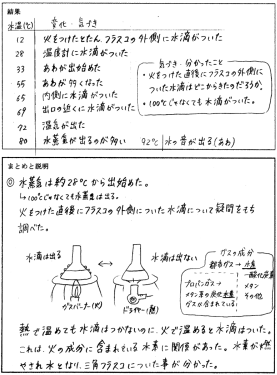 結果
水温(℃) 変化・気づき
12 火をつけたとたん、フラスコの外側に水滴がついた
28 温度計に水滴がついた
33 あわが出始めた
55 あわが多くなった
65 内側に水滴がついた
69 出口の近くに水滴がついた
92 湯気が出た
80 水蒸気が出るのが多い
92℃ 水の音が出る(あわ)
気づき・分かったこと
・火をつけた直後にフラスコの外側に
ついた水滴はどこからきたのだろうか。
・100℃じゃなくても水滴がついた。
まとめと説明
◎ 水蒸気は約28℃から出始めた。
↳100℃じゃなくても水蒸気は出る。
火をつけた直後にフラスコの外側についた水滴について疑問をもち
調べた。
水滴は出る
水滴は出ない
ガスバーナー(火)
ドライヤー(熱)
ガスの成分
都市ガス→水素
一酸化炭素
メタン
その他
プロパンガス→
メタン系の炭化水素
ガスが含まれている
熱で温めても水滴はつかないのに、火で温めると水滴はついた。
これは、火の成分に含まれている水素に関係があった。水素が燃
やされ水となり、三角フラスコについた事が分かった。